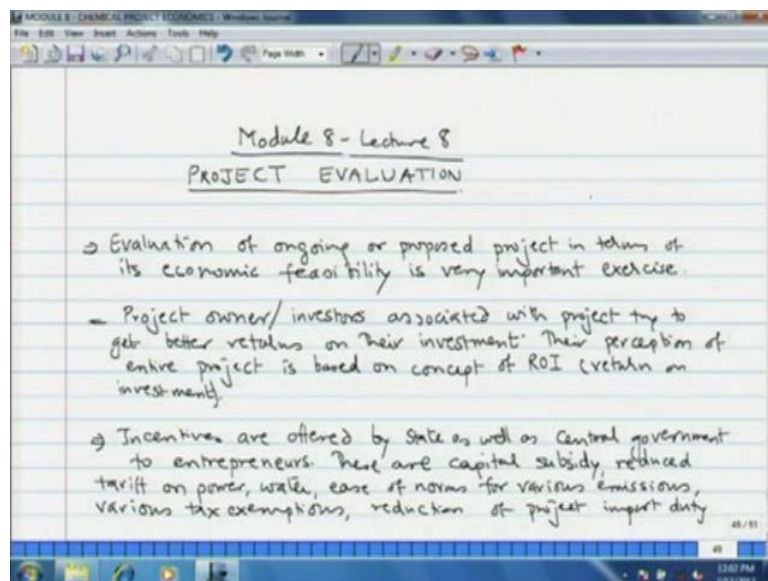 MODULE 8 - CHEMICAL PROJECT ECONOMICS - Windows Journal
File Edit View Insert Actions Tools Help
Page Width
Module 8 - Lecture 8
PROJECT EVALUATION
⇒ Evaluation of ongoing or proposed project in terms of
its economic feasibility is very important exercise.
- Project owner/ investors associated with project try to
get better returns on their investment. Their perception of
entire project is based on concept of ROI (return on
investment).
⇒ Incentives are offered by State as well as Central government
to entrepreneurs. There are capital subsidy, reduced
tariff on power, water, ease of norms for various emissions,
various tax exemptions, reduction of project import duty
49/51
49
12:02 PM